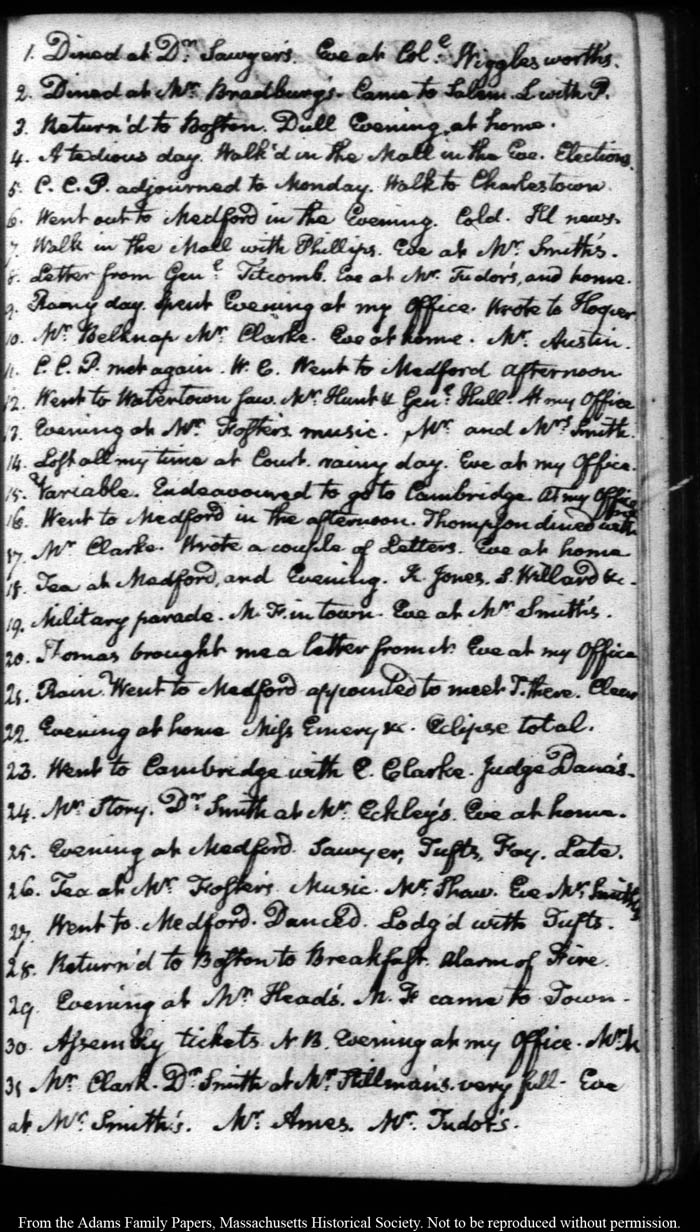 1. Dined at Dr. Sawyer's. Eve at Col.e Wigglesworth's.
2. Dined at Mr. Bradbury's. Came to Salem. L with P.
3. Return'd to Boston. Dull Evening at home.
4. A tedious day. Walk'd in the Mall in the Eve. Elections.
5. C. C. P. adjourned to Monday. Walk to Charlestown.
6. Went out to Medford in the Evening. Cold. Ill news.
7. Walk in the Mall with Phillips. Eve at Mr. Smith's.
8. Letter from Genl. Titcomb. Eve at Mr. Tudor's, and home.
9. Rainy day. Spent Evening at my Office. Wrote to
10. Mr. Belknap Mr. Clarke. Eve at home. Mr. Austin.
11. C. C. P. met again. W. C. Went to Medford afternoon
12. Went to Watertown saw Mr. Hunt & Genl. Hull. At my Office
13. Evening at Mr. Foster's music. Mr. and Mrs. Smith.
14. Lost all my time at Court. rainy day. Eve at my Office.
15. Variable. Endeavoured to go to Cambridge. At my Office
16. Went to Medford in the afternoon. Thompson dined with
17. Mr. Clarke. Wrote a couple of Letters. Eve at home
18. Tea at Medford, and Evening. K. Jones. S. Willard &c.
19. Military parade. M. F. in town. Eve at Mr. Smith's.
20. Thomas brought me a letter from Eve at my Office
21. Rain. Went to Medford appointed to meet T. there. Clear
22. Evening at home Miss Emery &c. Eclipse total.
23. Went to Cambridge with C. Clarke. Judge Dana's.
24. Mr. Story. Dr. Smith at Mr. Eckley's. Eve at home.
25. Evening at Medford. Sawyer, Tufts, Foy. Late.
26. Tea at Mr. Foster's. Music. Mr. Shaw. Eve Mr. Smith's
27. Went to Medford. Danced. Lodg'd with Tufts.
28. Return'd to Boston to Breakfast. Alarm of Fire.
29. Evening at Mr. Head's. M. F. came to Town.
30. Assembly tickets N B. Evening at my Office.
31 Mr. Clark. Dr. Smith at Mr. Stillman's. very full. Eve
at Mr. Smith's. Mr. Ames. Mr. Tudor's.
From the Adams Family Papers, Massachusetts Historical Society. Not to be reproduced without permission.